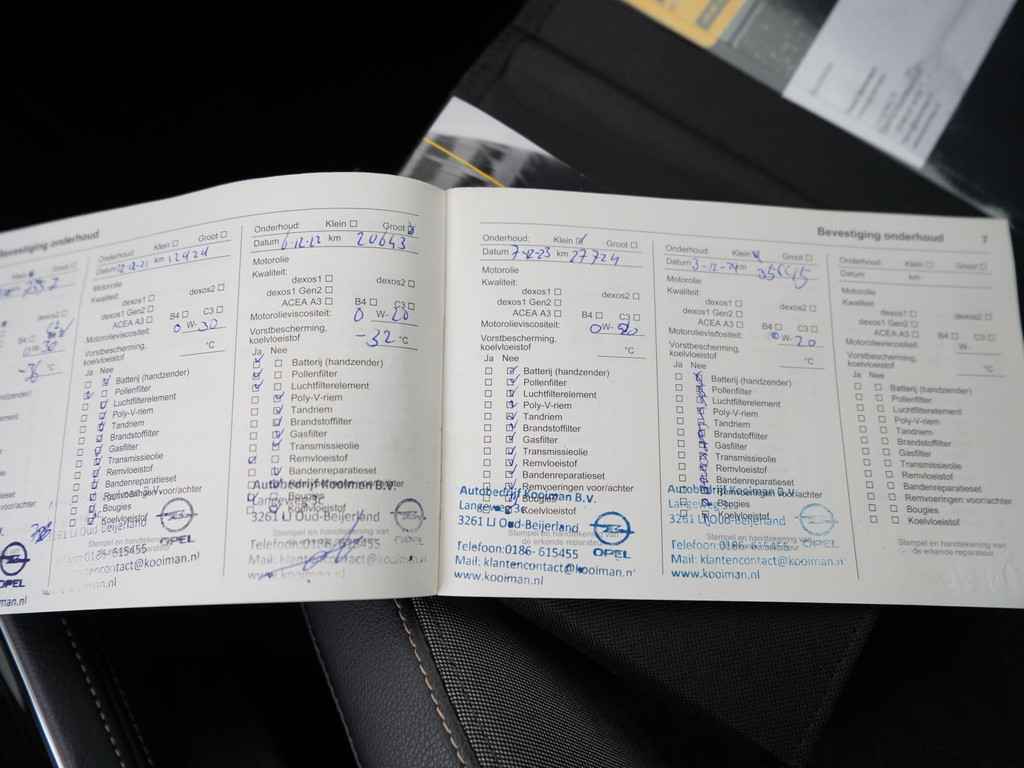 Bevestiging onderhoud
dexos2
0 W-30
°C
OPEL
Onderhoud: Klein Groot
Datum km 12424
Motorolie
Kwaliteit:
dexos1 dexos2
dexos1 Gen2
ACEA A3 B4 C3
Motorolieviscositeit: 0 W-30
Vorstbescherming,
koelvloeistof °C
Ja Nee
Batterij (handzender)
Pollenfilter
Luchtfilterelement
Poly-V-riem
Tandriem
Brandstoffilter
Gasfilter
Transmissieolie
Remvloeistof
Bandenreparatieset
Remvoeringen voor/achter
Bougies
Koelvloeistof
OPEL
Onderhoud: Klein Groot
Datum 6-12-22 km 20643
Motorolie
Kwaliteit:
dexos1 dexos2
dexos1 Gen2
ACEA A3 B4 C3
Motorolieviscositeit: 0 W-20
Vorstbescherming,
koelvloeistof -32 °C
Ja Nee
Batterij (handzender)
Pollenfilter
Luchtfilterelement
Poly-V-riem
Tandriem
Brandstoffilter
Gasfilter
Transmissieolie
Remvloeistof
Bandenreparatieset
Autobedrijf Kooiman B.V.
Bougies
3261 LJ Oud-Beijerland
Telefoon:0186-615455
Mail: klantencontact@kooiman.nl
www.kooiman.nl
OPEL
Onderhoud: Klein Groot
Datum 7-12-23 km 27724
Motorolie
Kwaliteit:
dexos1 dexos2
dexos1 Gen2
ACEA A3 B4 C3
Motorolieviscositeit: 0 W- 20
Vorstbescherming,
koelvloeistof °C
Ja Nee
Batterij (handzender)
Pollenfilter
Luchtfilterelement
Poly-V-riem
Tandriem
Brandstoffilter
Gasfilter
Transmissieolie
Remvloeistof
Bandenreparatieset
Remvoeringen voor/achter
Autobedrijf Kooiman B.V.
Langeweg 3c
3261 LJ Oud-Beijerland
Telefoon:0186-615455
Mail: klantencontact@kooiman.nl
www.kooiman.nl
OPEL
Bevestiging onderhoud 7
Onderhoud: Klein Groot
Datum 3-12-24 km 35645
Motorolie
Kwaliteit:
dexos1 dexos2
dexos1 Gen2
ACEA A3 B4 C3
Motorolieviscositeit: 0 W-20
Vorstbescherming,
koelvloeistof °C
Ja Nee
Batterij (handzender)
Pollenfilter
Luchtfilterelement
Poly-V-riem
Tandriem
Brandstoffilter
Gasfilter
Transmissieolie
Remvloeistof
Bandenreparatieset
Remvoeringen voor/achter
Autobedrijf Kooiman B.V.
Bougies
Koelvloeistof
3261 LJ Oud-Beijerland
Stempel en handtekening van
Telefoon:0186-615455
Mail: klantencontact@kooiman.nl
www.kooiman.nl
OPEL
Onderhoud: Klein Groot
Datum km
Motorolie
Kwaliteit:
dexos1 dexos2
dexos1 Gen2
ACEA A3 B4 C3
Motorolieviscositeit: W-
Vorstbescherming,
koelvloeistof °C
Ja Nee
Batterij (handzender)
Pollenfilter
Luchtfilterelement
Poly-V-riem
Tandriem
Brandstoffilter
Gasfilter
Transmissieolie
Remvloeistof
Bandenreparatieset
Remvoeringen voor/achter
Bougies
Koelvloeistof
Stempel en handtekening van
de erkende reparateur